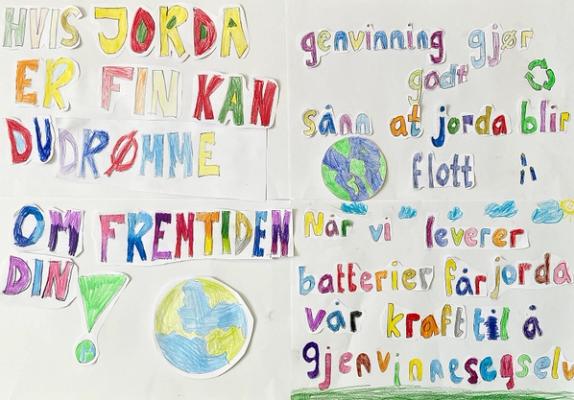 HVIS JORDA
ER FIN KAN
DU DRØMME
OM FREMTIDEN
DIN!
genvinning gjør
godt
sånn at jorda blir
flott
Når vi leverer
batterier får jorda
vår kraft til å
gjenvinnesegselv